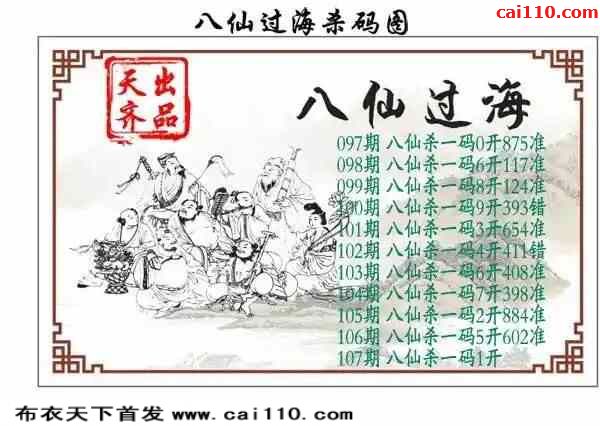 八仙过海杀码图
cai110.com
天齐出品
八仙过海
097期 八仙杀一码0开875准
098期 八仙杀一码6开117准
099期 八仙杀一码8开124准
100期 八仙杀一码9开393错
101期 八仙杀一码3开654准
102期 八仙杀一码4开411错
103期 八仙杀一码6开408准
104期 八仙杀一码7开398准
105期 八仙杀一码2开884准
106期 八仙杀一码5开602准
107期 八仙杀一码1开
布衣天下首发 www.cai110.com